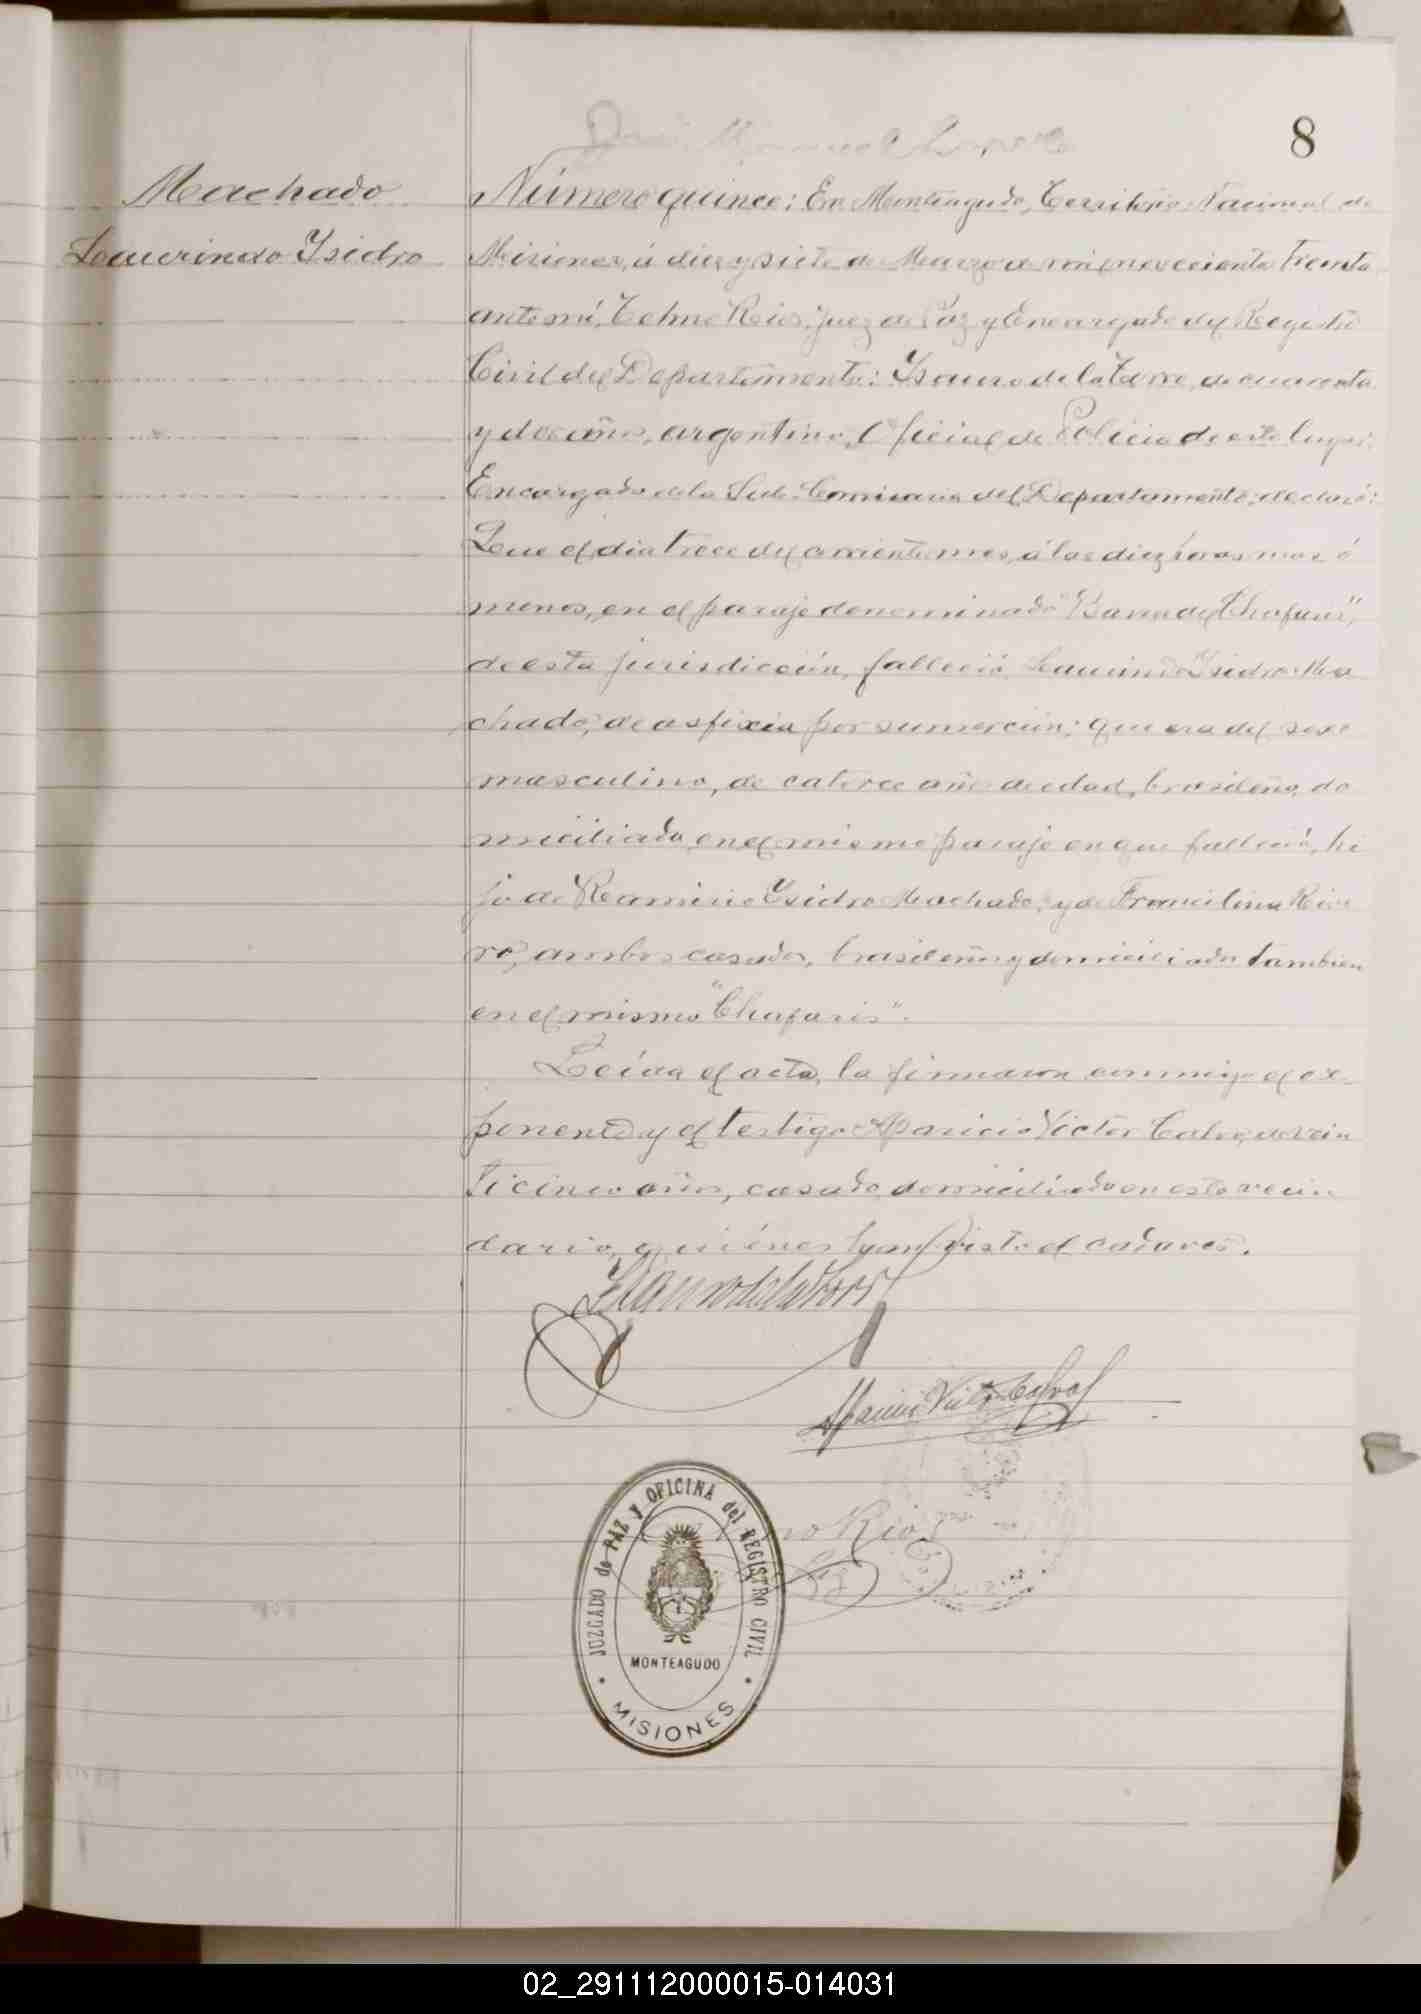 8
Machado
Laurindo Ysidro
Número quince: En Monteagudo, Territorio Nacional de
Misiones, á diez y siete de Marzo de mil novecientos treinta
ante mí, Telmo Rios, Juez de Paz y Encargado del Registro
Civil del Departamento: Ysauro de la Torre, de cuarenta
y dos años, argentino, Oficial de Policia de este lugar,
Encargado de la Sub-Comisaria del Departamento; declaró:
Que el dia trece del corriente mes, á las diez horas mas ó
menos, en el paraje denominado "Barra del Chafaris",
de esta jurisdicción, falleció Laurindo Ysidro Ma
chado, de asfixia por sumerción; que era del sexo
masculino, de catorce años de edad, brasileño, do
miciliado en el mismo paraje en que falleció, hi
jo de Ramirio Ysidro Machado, y de Francilina Ribei
ro, ambos casados, brasileños y domiciliados tambien
en el mismo "Chafaris".
Leida el acta, la firmaron conmigo el ex-
ponente y el testigo Aparicio Victor Cabral, de vein
ticinco años, casado, domiciliado en este vecin
dario, quiénes han visto el cadaver.
Ysauro de la Torre
Aparicio Victor Cabral
no Rios
JUZGADO de PAZ Y OFICINA del REGISTRO CIVIL
MONTEAGUDO
MISIONES
02_291112000015-014031